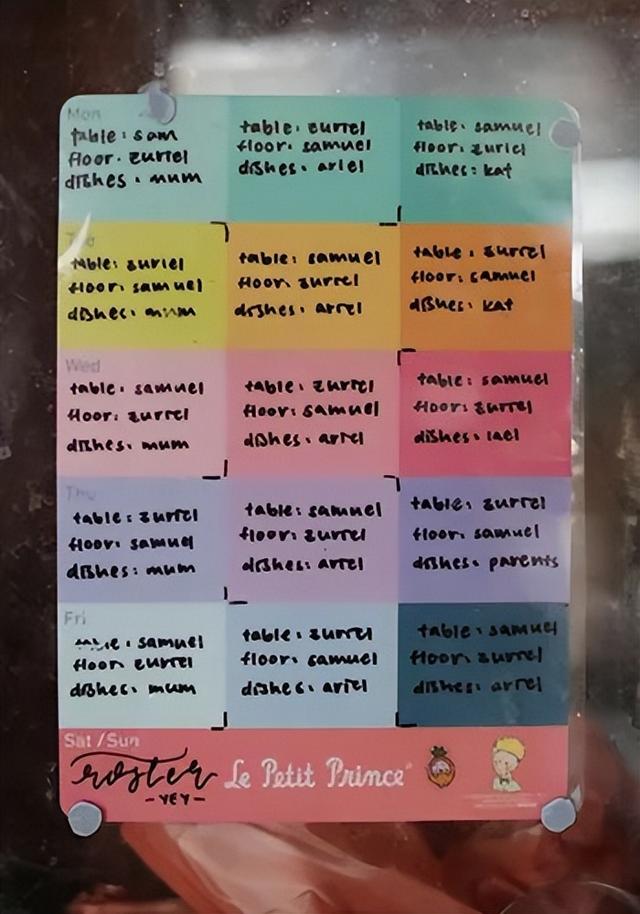 Mon
table: sam
floor. zuriel
dishes. mum
table: zuriel
floor: samuel
dishes. ariel
table: samuel
floor: zuriel
dishes: kat
Tue
table: zuriel
floor: samuel
dishes: mum
table: samuel
floor: zuriel
dishes: ariel
table: zuriel
floor: samuel
dishes: kat
Wed
table: samuel
floor: zuriel
dishes: mum
table: zuriel
floor: samuel
dishes: ariel
table: samuel
floor: zuriel
dishes: lael
Thu
table: zuriel
floor: samuel
dishes: mum
table: samuel
floor: zuriel
dishes: ariel
table: zuriel
floor: samuel
dishes. parents
Fri
table: samuel
floor: zuriel
dishes: mum
table: zuriel
floor: samuel
dishes. ariel
table: samuel
floor: zuriel
dishes: ariel
Sat / Sun
roster
-YEY-
Le Petit Prince